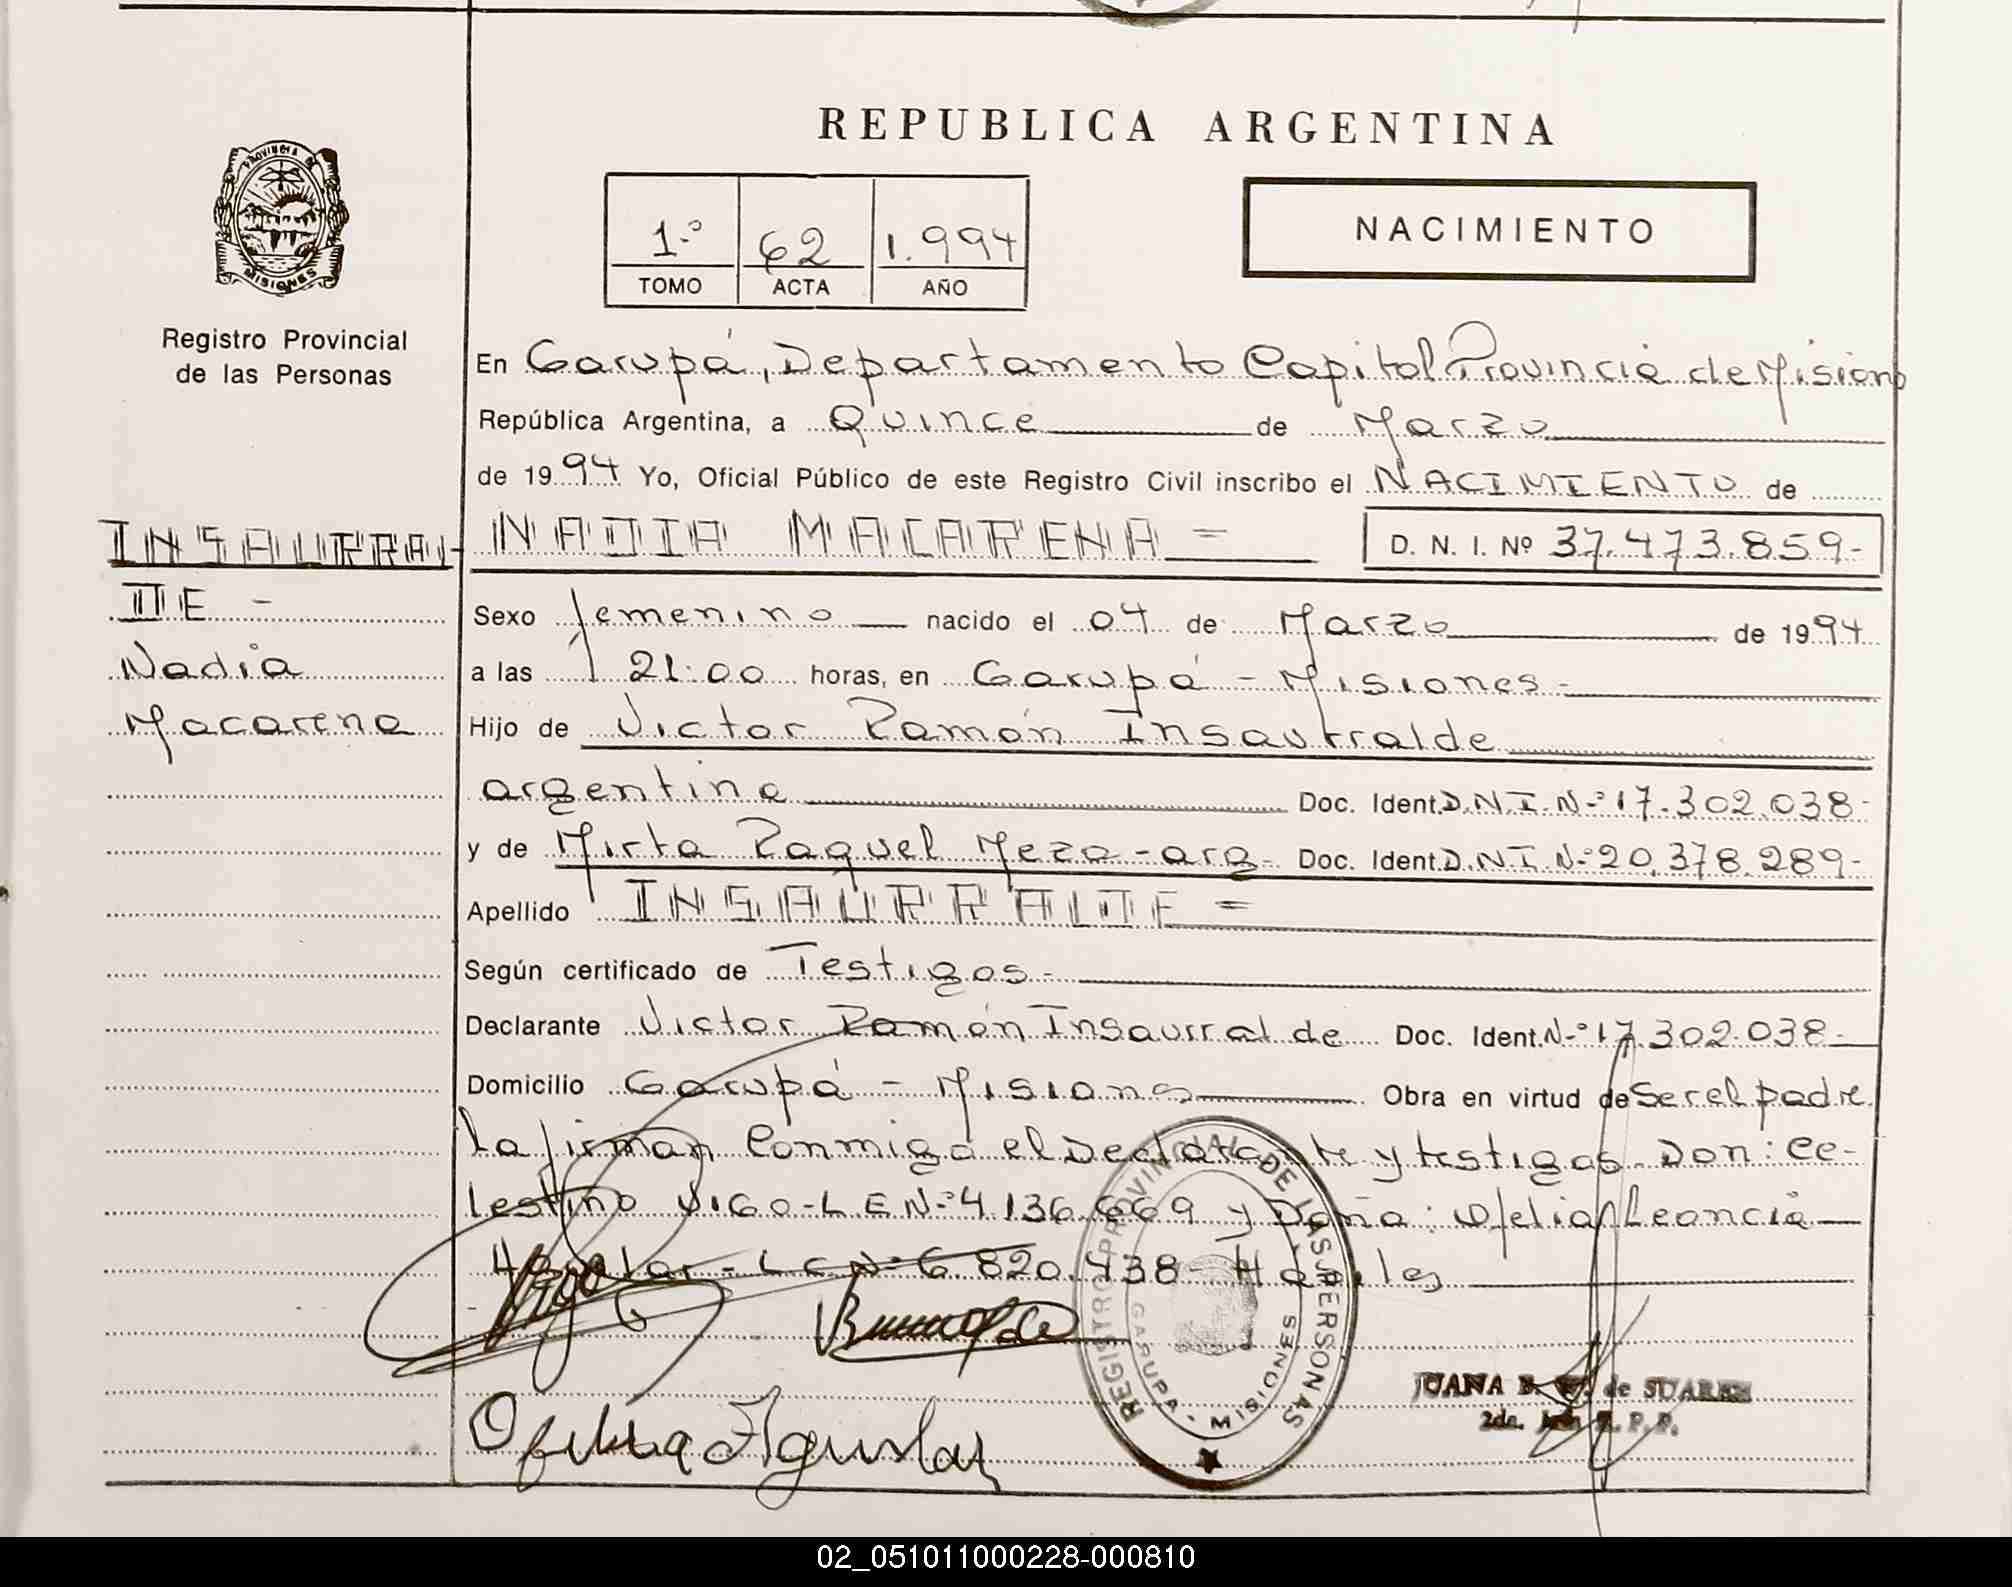 REPUBLICA ARGENTINA
PROVINCIA DE
MISIONES
Registro Provincial
de las Personas
1.º 62 1.994
TOMO ACTA AÑO
NACIMIENTO
En Garupá, Departamento Capital Provincia de Misiones
República Argentina, a Quince de Marzo
de 1994 Yo, Oficial Público de este Registro Civil inscribo el NACIMIENTO de
INSAURRAL-
DE -
Nadia
Macarena
NADIA MACARENA =
D. N. I. Nº 37.473.859-
Sexo femenino nacido el 04 de Marzo de 1994
a las 21:00 horas, en Garupá - Misiones -
Hijo de Victor Ramón Insaurralde
argentina Doc. Ident. D.N.I. Nº 17.302.038-
y de Mirta Raquel Meza - arg- Doc. Ident. D.N.I. Nº 20.378.289-
Apellido INSAURRALDE =
Según certificado de Testigos -
Declarante Victor Ramón Insaurralde Doc. Ident. Nº 17.302.038-
Domicilio Garupá - Misiones Obra en virtud de Ser el padre.
La firman Conmigo el Declarante y testigos Don: Ce-
lestino Vigo - L E Nº 4.136.669 y Doña: Ofelia Leoncia
- L C Nº 6.820.438 - Hábiles
REGISTRO PROVINCIAL DE LAS PERSONAS
GARUPA - MISIONES
JUANA B. de SUAREZ
2da. R. P. P.
Ofelia Aguilar
02_051011000228-000810